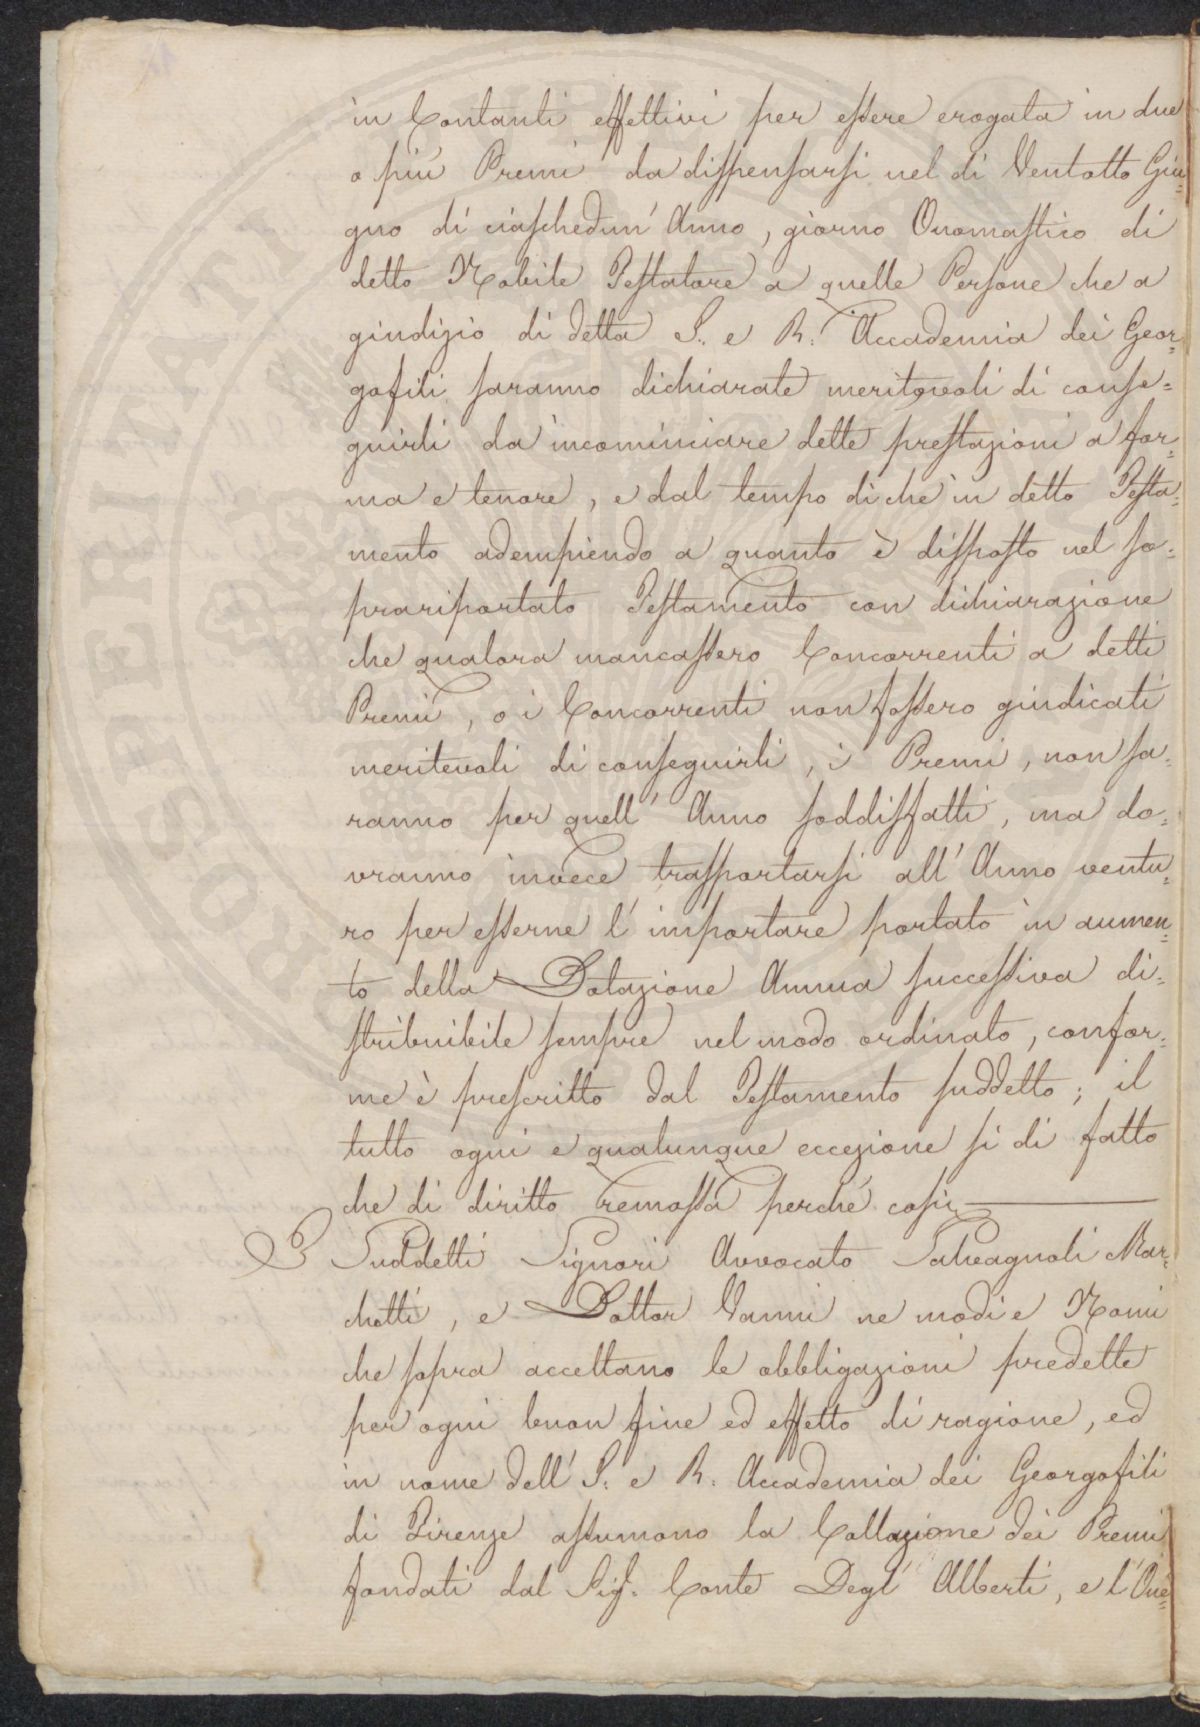 in Contanti effettivi per essere erogata in due
o più Premi da dispensarsi nel dì Ventotto Giu=
gno di ciaschedun' Anno, giorno Onomastico di
detto Nobile Testatore a quelle Persone che a
giudizio di detta I. e R. Accademia dei Geor=
gofili saranno dichiarate meritevoli di conse=
guirli da incominciare dette prestazioni a for=
ma e tenore, e dal tempo di che in detto Testa=
mento adempiendo a quanto è disposto nel so=
prariportato Testamento con dichiarazione
che qualora mancassero Concorrenti a detti
Premi, o i Concorrenti non fossero giudicati
meritevoli di conseguirli, i Premi, non sa=
ranno per quell' Anno soddisfatti, ma do=
vranno invece trasportarsi all' Anno ventu=
ro per esserne l' importare portato in aumen=
to della Dotazione Annua successiva di=
stribuibile sempre nel modo ordinato, confor=
me è prescritto dal Testamento suddetto; il
tutto ogni e qualunque eccezione sì di fatto
che di diritto remossa perché così
E Suddetti Signori Avvocato Salvagnoli Mar=
chetti, e Dottor Vanni ne modi e Nomi
che sopra accettano le obbligazioni predette
per ogni buon fine ed effetto di ragione, ed
in nome dell' I. e R. Accademia dei Georgofili
di Firenze assumono la Collazione dei Premi
fondati dal Sig.r Conte Degl' Alberti, e l' One=
SOSPERIMENTATI